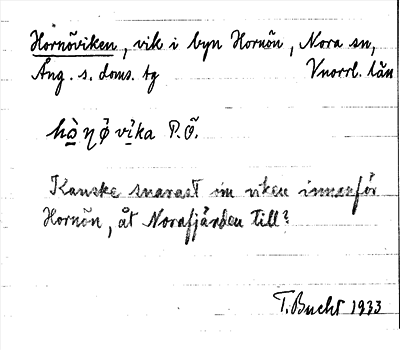 Hornöviken, vik i byn Hornön, Nora sn,
Ång. s. doms. tg Vnorrl. län
hò̠ɳø̇vi̇ka P.Ö.
Kanske snarast om viken innanför
Hornön, åt Norafjärden till?
T. Bucht 1933